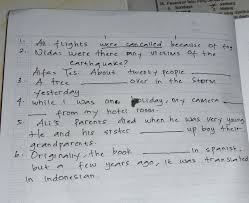 1. All flights were cancelled because of fog
2. Nida: were there any victims of the
earthquake?
Alfa: Yes. About twenty people ____
3. A tree ____ over in the storm
yesterday
4. while I was on holiday, my camera ____
____ from my hotel room.
5. Ali's parents died when he was very young
He and his sister ____ up by their
grandparents.
6. Originally, the book ____ in spanish.
but a few years ago, it was translated
in Indonesian.